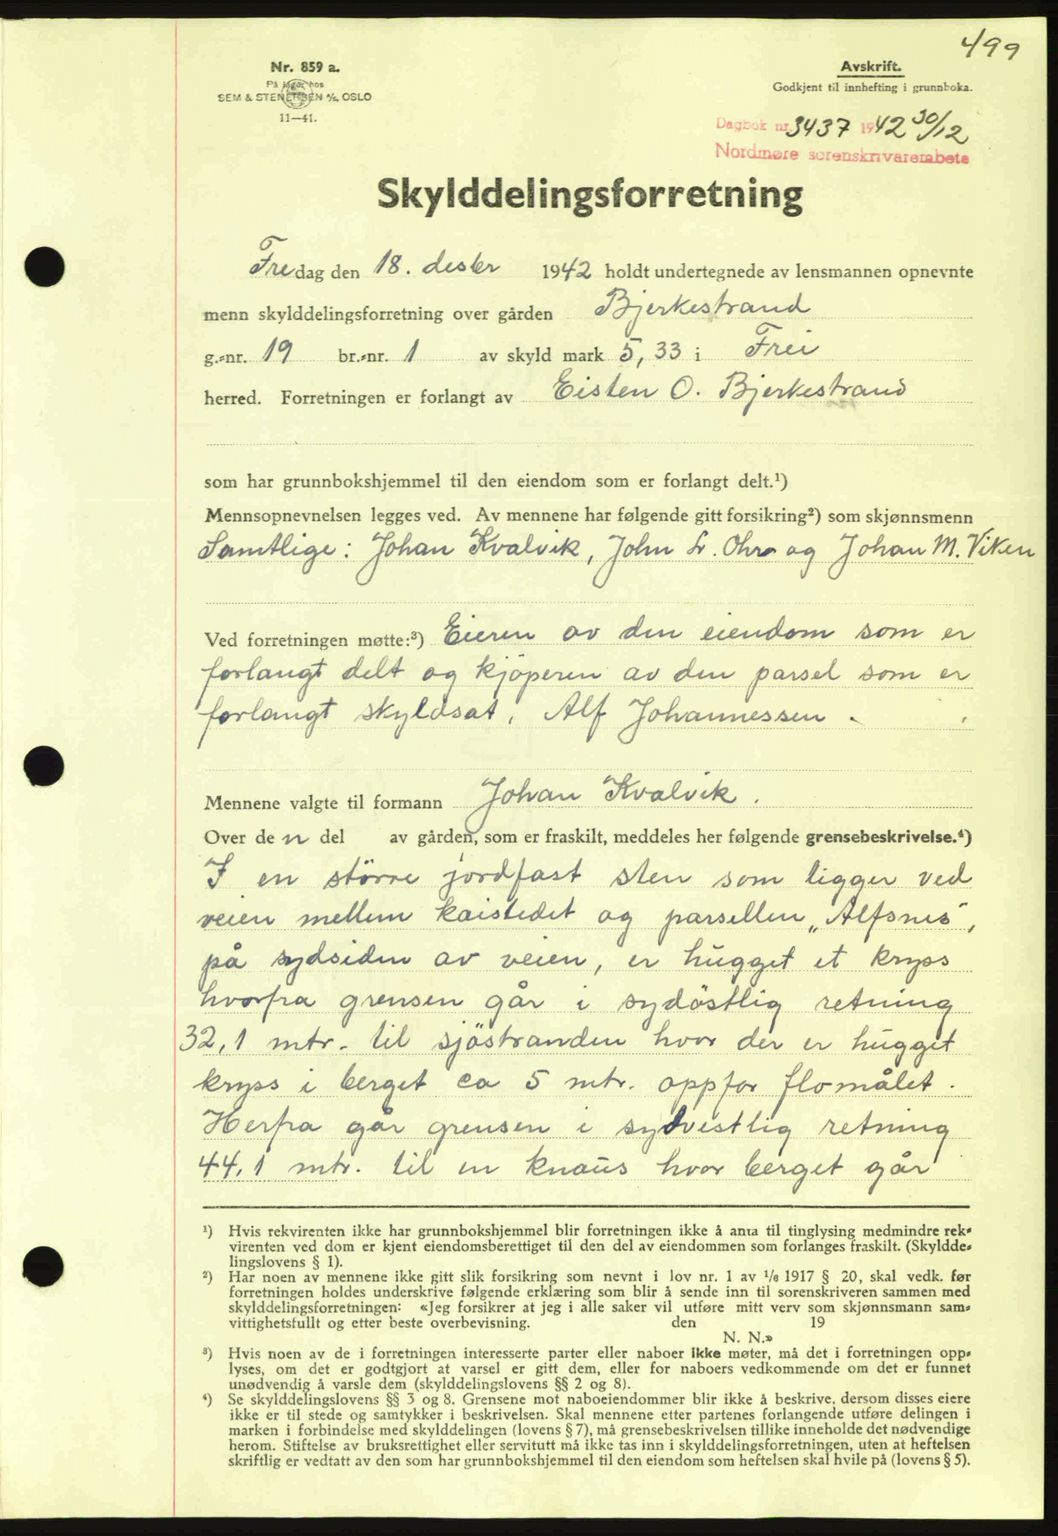 499
Nr. 859 a.
På lager hos
SEM & STENERSEN A/S, OSLO
11—41.
Avskrift.
Godkjent til innhefting i grunnboka.
Dagbok nr. 3437 1942 30/12
Nordmøre sorenskriverembete
Skylddelingsforretning
Fredag den 18. desbr 1942 holdt undertegnede av lensmannen opnevnte
menn skylddelingsforretning over gården Bjerkestrand
g.-nr. 19 br.-nr. 1 av skyld mark 5,33 i Frei
herred. Forretningen er forlangt av Eisten O. Bjerkestrand
som har grunnbokshjemmel til den eiendom som er forlangt delt.¹)
Mennsopnevnelsen legges ved. Av mennene har følgende gitt forsikring²) som skjønnsmenn
Samtlige: Johan Kvalvik, John Lr. Ohro og Johan M. Viken
Ved forretningen møtte:³) Eieren av den eiendom som er
forlangt delt og kjöperen av den parsel som er
forlangt skyldsat, Alf Johannessen.
Mennene valgte til formann Johan Kvalvik.
Over den del av gården, som er fraskilt, meddeles her følgende grensebeskrivelse.⁴)
I en större jordfast sten som ligger ved
veien mellem kaistedet og parsellen „Alfsnes",
på sydsiden av veien, er hugget et kryss
hvorfra grensen går i sydöstlig retning
32,1 mtr. til sjöstranden hvor der er hugget
kryss i berget ca 5 mtr. oppfor flomålet.
Herfra går grensen i sydvestlig retning
44,1 mtr. til en knaus hvor berget går
¹) Hvis rekvirenten ikke har grunnbokshjemmel blir forretningen ikke å anta til tinglysing medmindre rek-
virenten ved dom er kjent eiendomsberettiget til den del av eiendommen som forlanges fraskilt. (Skyldde-
lingslovens § 1).
²) Har noen av mennene ikke gitt slik forsikring som nevnt i lov nr. 1 av 1/6 1917 § 20, skal vedk. før
forretningen holdes underskrive følgende erklæring som blir å sende inn til sorenskriveren sammen med
skylddelingsforretningen: «Jeg forsikrer at jeg i alle saker vil utføre mitt verv som skjønnsmann sam-
vittighetsfullt og etter beste overbevisning. den 19
N. N.»
³) Hvis noen av de i forretningen interesserte parter eller naboer ikke møter, må det i forretningen opp-
lyses, om det er godtgjort at varsel er gitt dem, eller for naboers vedkommende om det er funnet
unødvendig å varsle dem (skylddelingslovens §§ 2 og 8).
⁴) Se skylddelingslovens §§ 3 og 8. Grensene mot naboeiendommer blir ikke å beskrive, dersom disses eiere
ikke er til stede og samtykker i beskrivelsen. Skal mennene etter partenes forlangende utføre delingen i
marken i forbindelse med skylddelingen (lovens § 7), må grensebeskrivelsen tillike inneholde det nødvendige
herom. Stiftelse av bruksrettighet eller servitutt må ikke tas inn i skylddelingsforretningen, uten at heftelsen
skriftlig er vedtatt av den som har grunnbokshjemmel til den eiendom som heftelsen skal hvile på (lovens § 5).